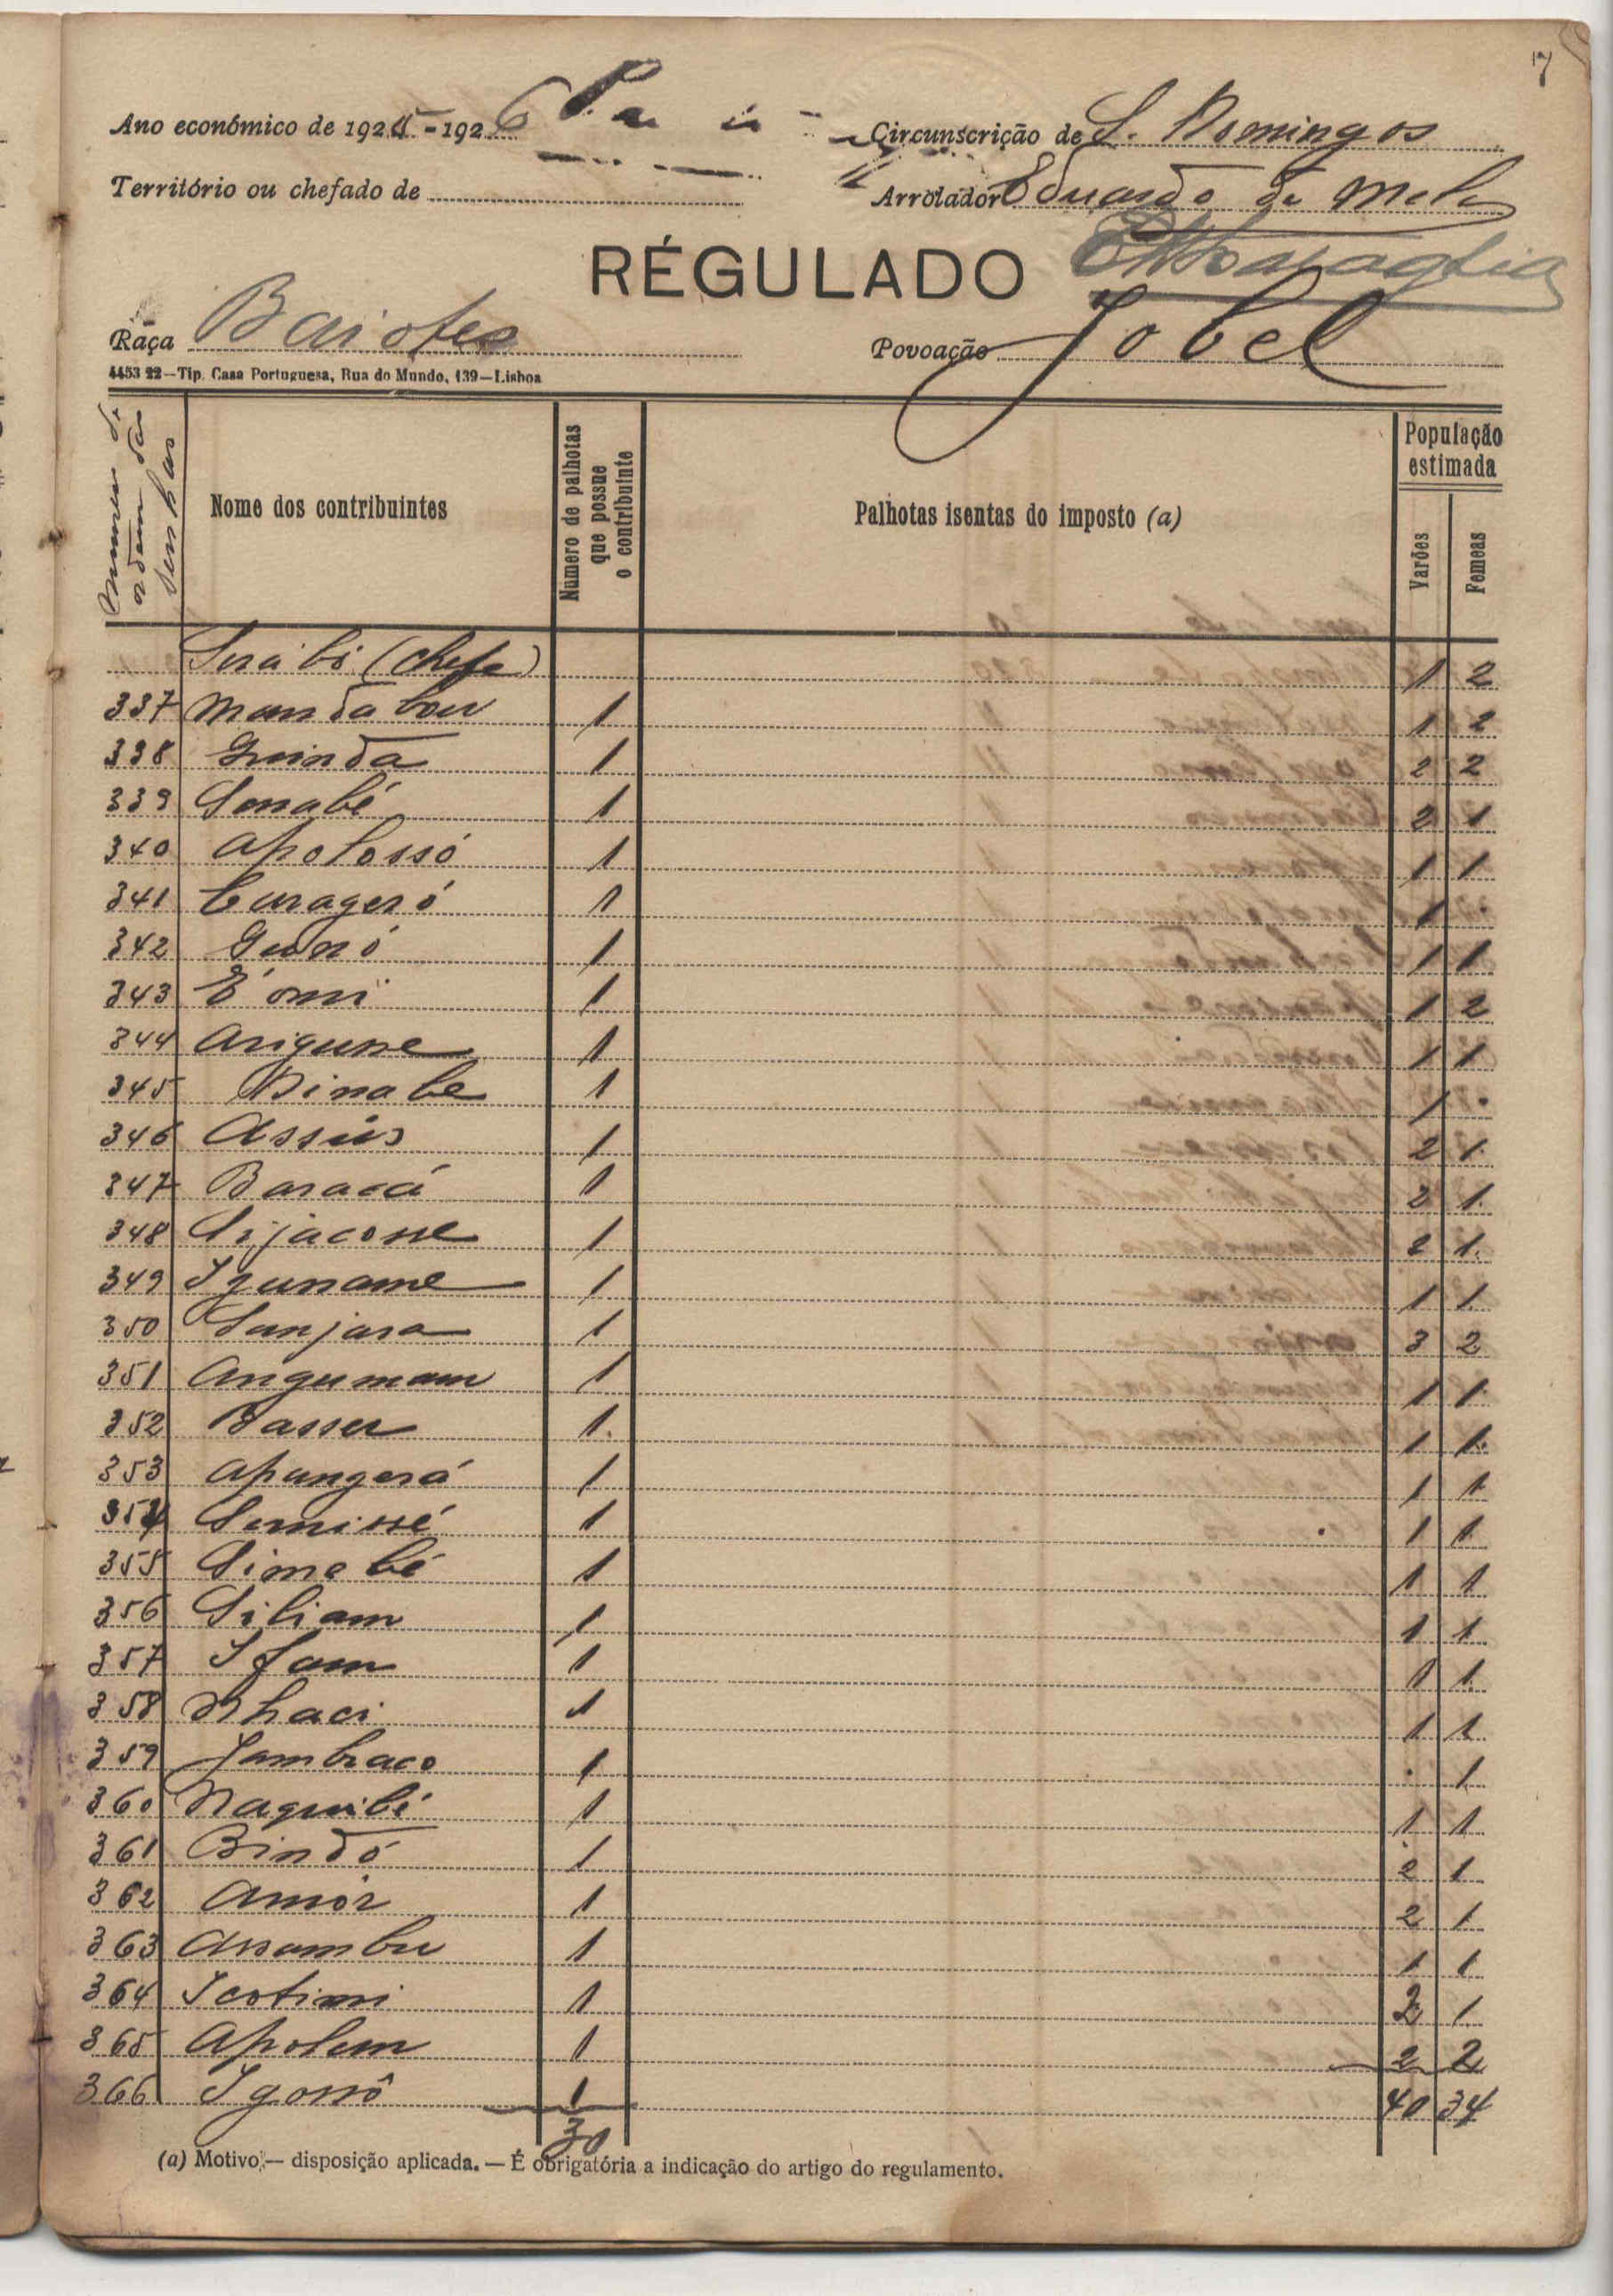 7
Ano económico de 1925-1926 Circunscrição de S. Domingos
Território ou chefado de Arrolador Eduardo de Melo
RÉGULADO
Raça Baiotes Povoação Jobel
4453 22—Tip. Casa Portuguesa, Rua do Mundo, 139—Lisboa
Numero de ordem das senhas
Nome dos contribuintes
Número de palhotas que possue o contribuinte
Palhotas isentas do imposto (a)
População estimada
Varões
Femeas
Seraibi (chefe) 1 2
337 Mandabou 1 1 2
338 Guinda 1 2 2
339 Senabé 1 2 1
340 Apolossó 1 1 1
341 Curageró 1 1 .
342 Gunó 1 1 1
343 É omi 1 1 2
344 Arigune 1 1 1
345 Dinabe 1 1 .
346 Assüs 1 2 1
347 Baracá 1 2 1
348 Sijacosse 1 2 1
349 Iguname 1 1 1
350 Sanjara 1 3 2
351 Angumam 1 1 1
352 Basser 1 1 1
353 Apungerá 1 1 1
354 Semissé 1 1 1
355 Simebé 1 1 1
356 Siliam 1 1 1
357 Ifam 1 1 1
358 Nhaci 1 1 1
359 Jambraco 1 . 1
360 Naquibi 1 1 1
361 Bindó 1 2 1
362 Amór 1 2 1
363 Assambu 1 1 1
364 Icotimi 1 2 1
365 Apolem 1 2 2
366 Igossô 1 40 34
30
(a) Motivo;— disposição aplicada. — É obrigatória a indicação do artigo do regulamento.